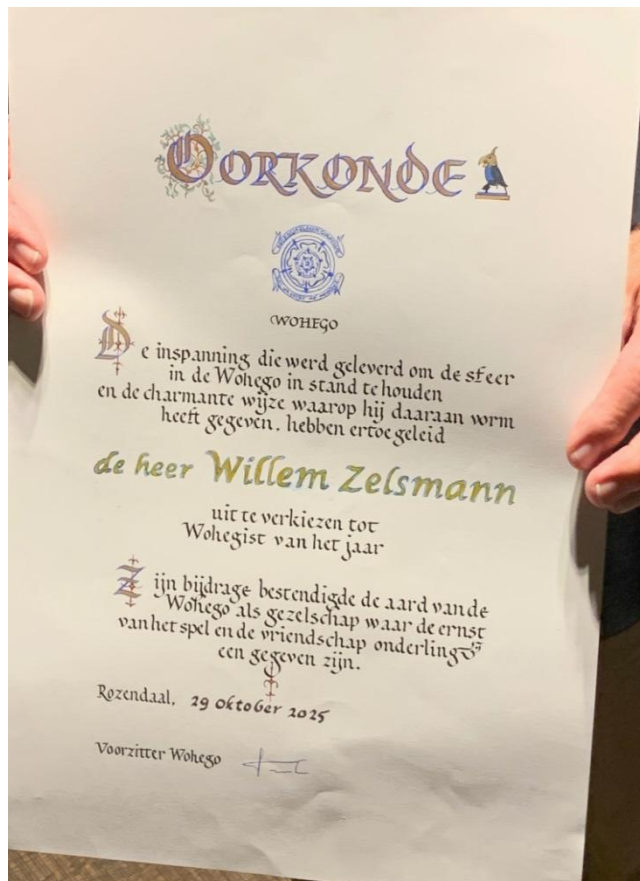 OORKONDE
WOHEGO
De inspanning die werd geleverd om de sfeer
in de Wohego in stand te houden
en de charmante wijze waarop hij daaraan vorm
heeft gegeven, hebben ertoe geleid
de heer Willem Zelsmann
uit te verkiezen tot
Wohegist van het jaar
Zijn bijdrage bestendigde de aard van de
Wohego als gezelschap waar de ernst
van het spel en de vriendschap onderling
een gegeven zijn.
Rozendaal, 29 oktober 2025
Voorzitter Wohego